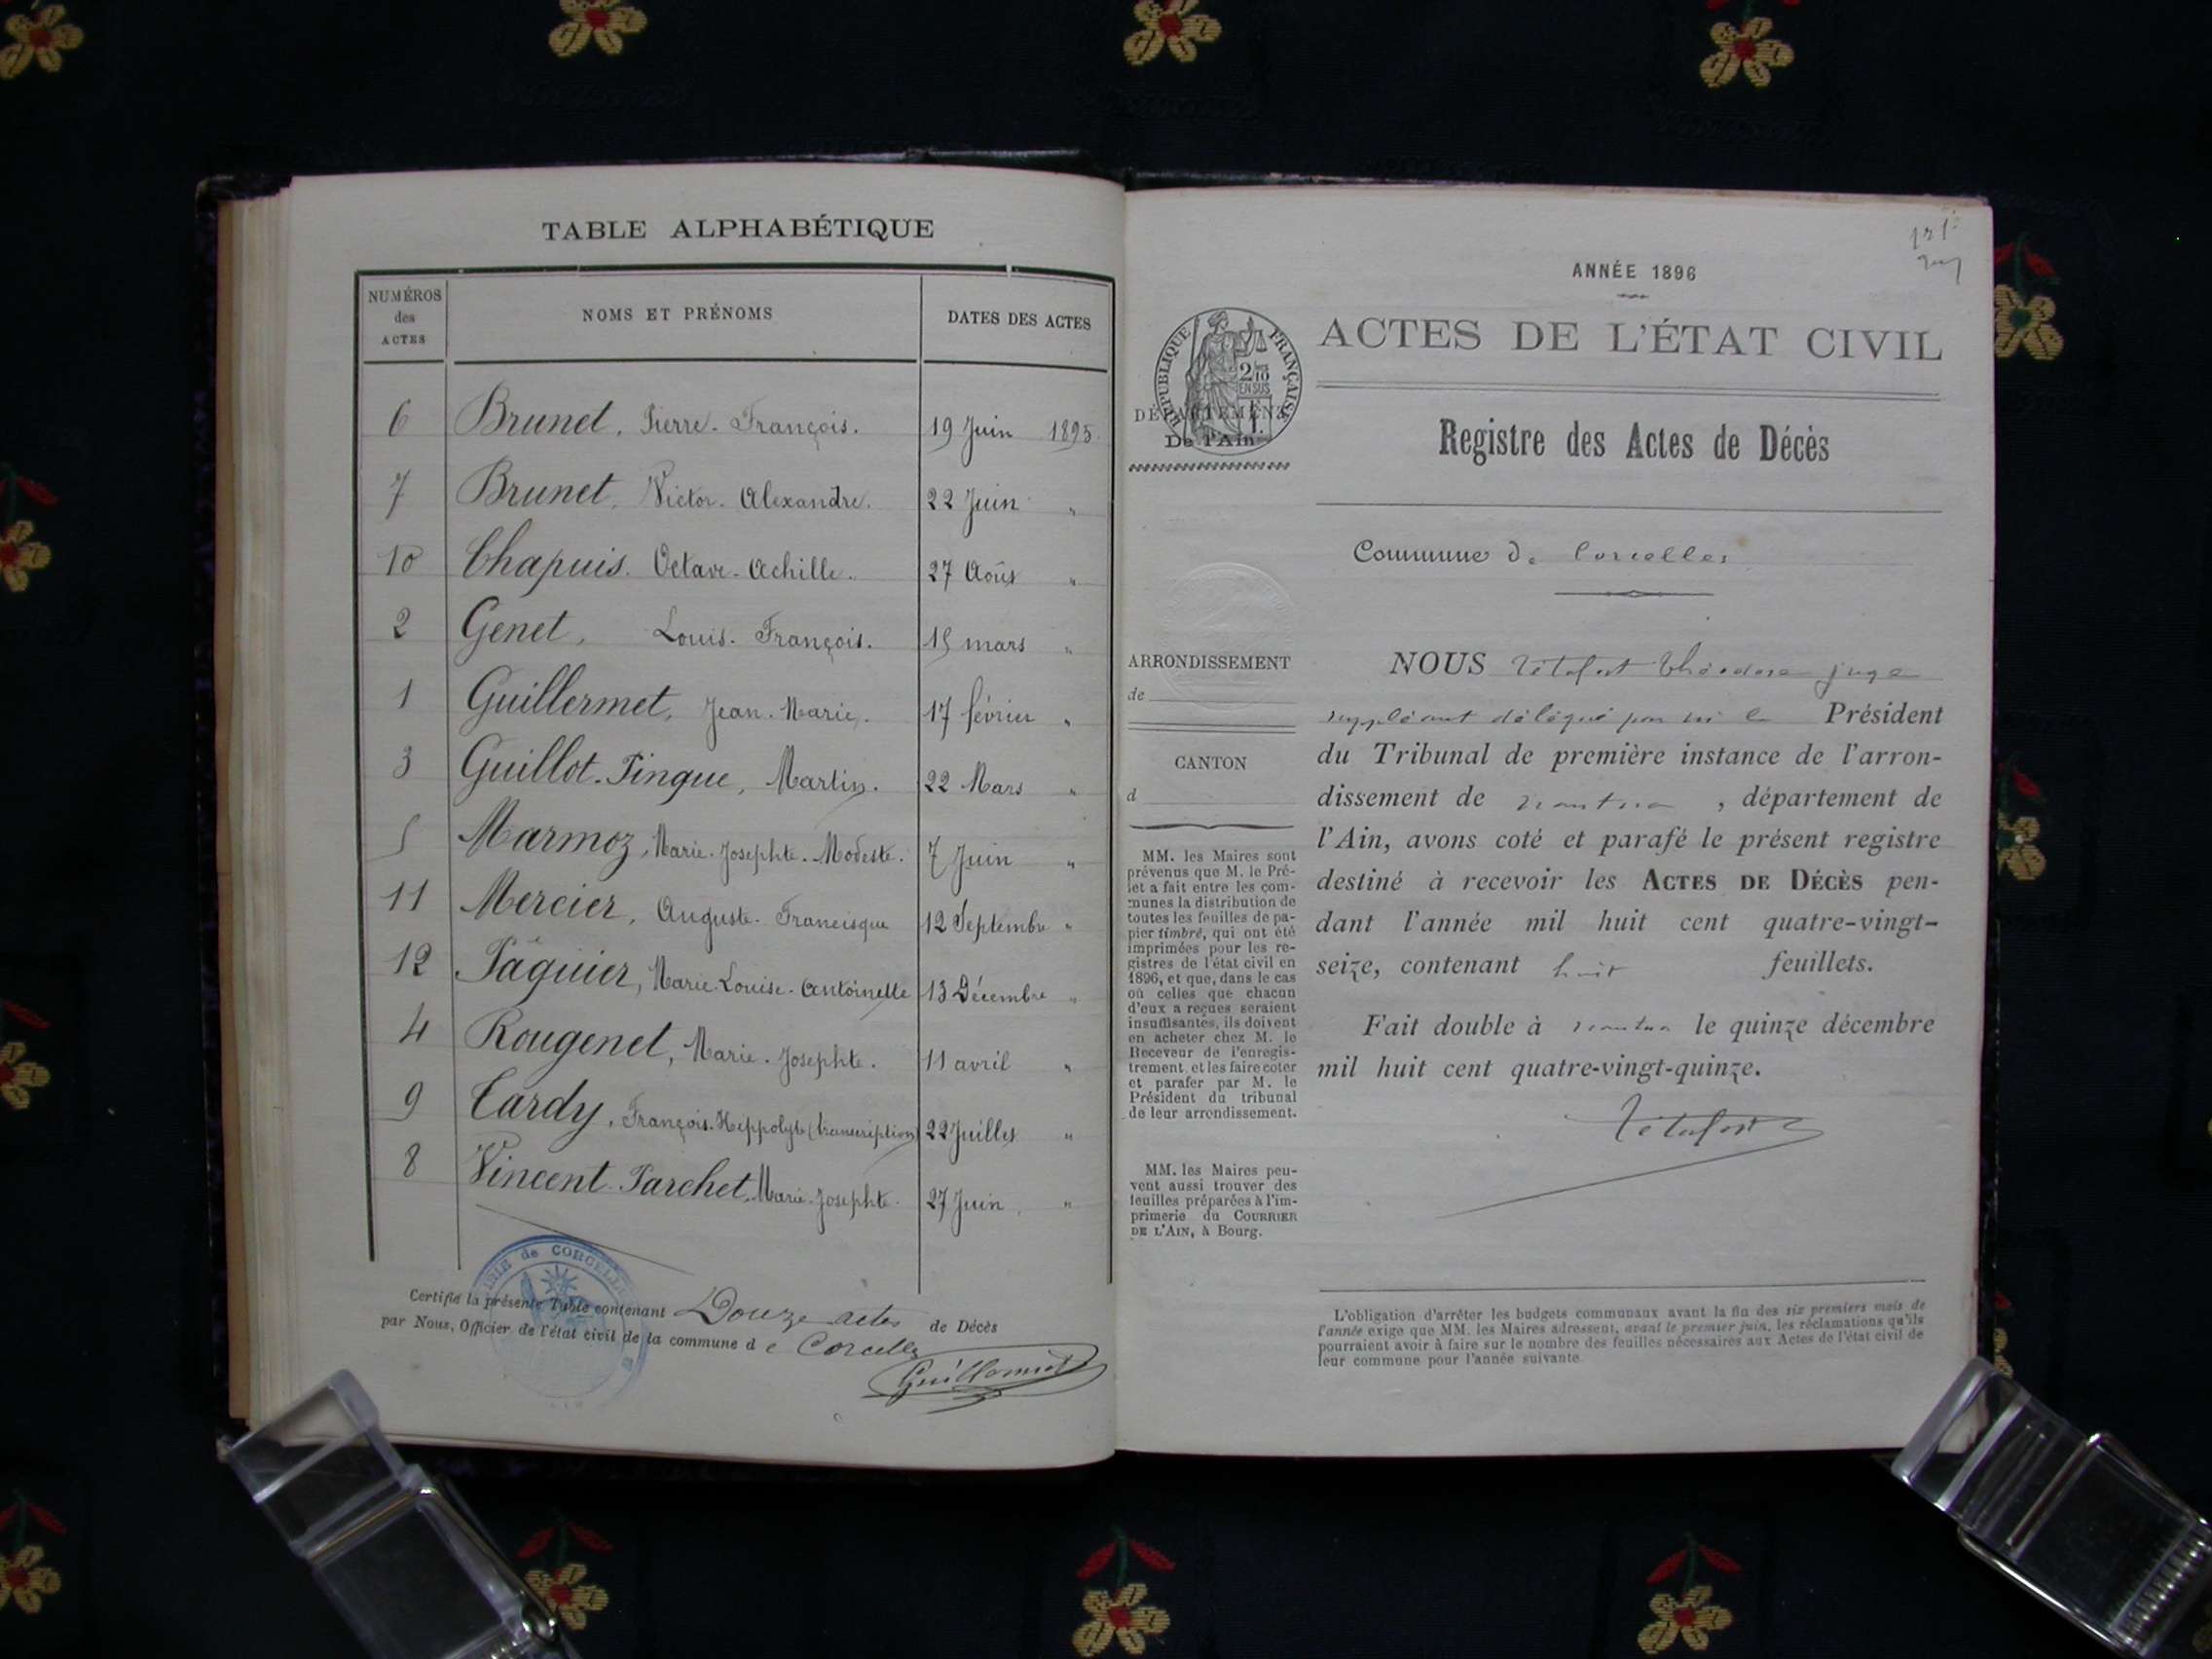 TABLE ALPHABÉTIQUE
NUMÉROS
des
ACTES
NOMS ET PRÉNOMS
DATES DES ACTES
6 Brunet, Pierre-François. 19 Juin 1895.
7 Brunet, Victor-Alexandre. 22 Juin "
10 Chapuis. Octave-Achille. 27 Août "
2 Genet, Louis-François. 15 mars "
1 Guillermet, Jean-Marie. 17 février "
3 Guillot-Pingue, Martin. 22 Mars "
5 Marmoz, Marie-Josephte-Modeste. 7 Juin "
11 Mercier, Auguste-Francisque 12 Septembre "
12 Pâquier, Marie-Louise-Antoinette 13 Décembre "
4 Rougenet, Marie-Josephte. 11 avril "
9 Tardy, François-Hippolyte (transcription) 22 Juillet "
8 Vincent-Parchet, Marie-Josephte. 27 Juin "
MAIRIE de CORCELLES
Certifié la présente Table contenant Douze actes de Décès
par Nous, Officier de l'état civil de la commune d e Corcelles
Guillermet
ANNÉE 1896
RÉPUBLIQUE FRANÇAISE
2/10
EN SUS
DÉPARTEMENT
De l'Ain
ACTES DE L'ÉTAT CIVIL
Registre des Actes de Décès
Commune de Corcelles
ARRONDISSEMENT
de
CANTON
d
MM. les Maires sont
prévenus que M. le Pré-
fet a fait entre les com-
munes la distribution de
toutes les feuilles de pa-
pier timbré, qui ont été
imprimées pour les re-
gistres de l'état civil en
1896, et que, dans le cas
où celles que chacun
d'eux a reçues seraient
insuffisantes, ils doivent
en acheter chez M. le
Receveur de l'enregis-
trement et les faire coter
et parafer par M. le
Président du tribunal
de leur arrondissement.
MM. les Maires peu-
vent aussi trouver des
feuilles préparées à l'im-
primerie du COURRIER
DE L'AIN, à Bourg.
NOUS Tétafort Théodore juge
suppléant délégué par mr le Président
du Tribunal de première instance de l'arron-
dissement de Nantua, département de
l'Ain, avons coté et parafé le présent registre
destiné à recevoir les ACTES DE DÉCÈS pen-
dant l'année mil huit cent quatre-vingt-
seize, contenant huit feuillets.
Fait double à Nantua le quinze décembre
mil huit cent quatre-vingt-quinze.
Tétafort
L'obligation d'arrêter les budgets communaux avant la fin des six premiers mois de
l'année exige que MM. les Maires adressent, avant le premier juin, les réclamations qu'ils
pourraient avoir à faire sur le nombre des feuilles nécessaires aux Actes de l'état civil de
leur commune pour l'année suivante.